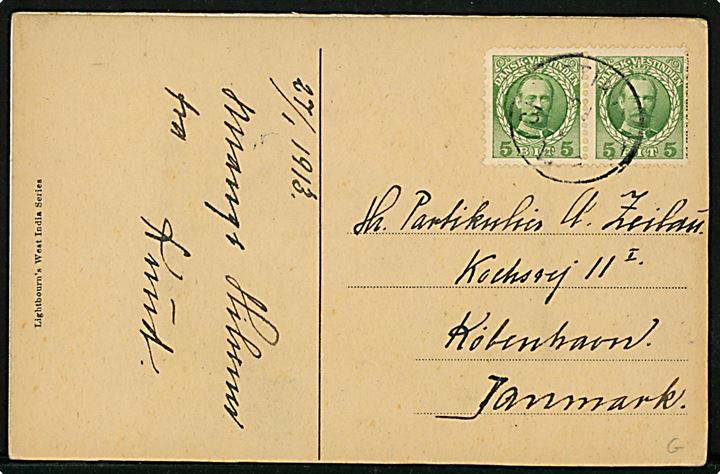 27/1 1913.
Mange Hilsner
fra
Knud.
Lightbourn's West India Series
DANSK-VESTINDIEN
5 BIT 5
DANSK-VESTINDIEN
5 BIT 5
Hr. Partikulier A. Zeilau.
Kochsvej 11 I.
København.
Danmark.
G